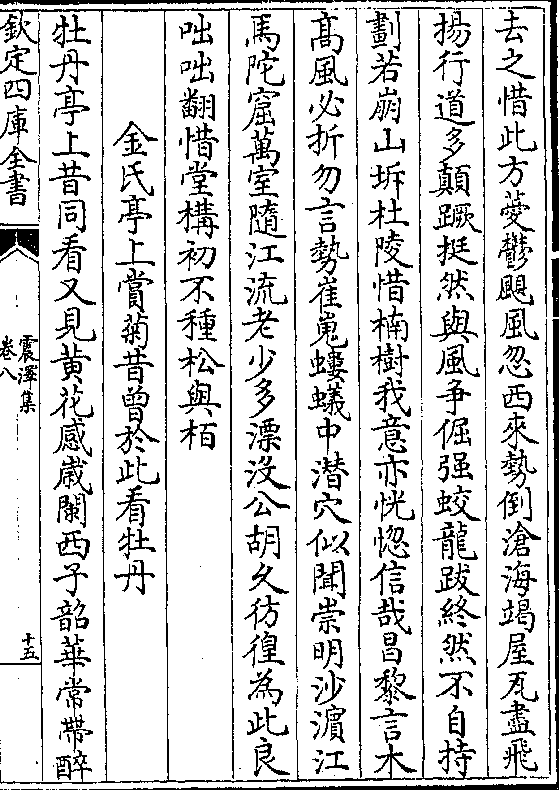 去之惜此方蔆鬱颶風忽西來勢倒滄海竭屋瓦盡飛
揚行道多顛蹶挺然與風爭倔强蛟龍跋終然不自持
劃若崩山坼杜陵惜楠樹我意亦恍惚信哉昌黎言木
髙風必折勿言勢崔嵬螻蟻中潜穴似聞崇明沙濵江
馬陀窟萬室隨江流老少多漂没公胡久彷徨為此良
咄咄翻惜堂構初不種松與栢
金氏亭上賞菊昔曾於此看牡丹
牡丹亭上昔同看又見黃花感嵗闌西子韶華常帶醉
欽定四庫全書
震澤集
卷八
十五